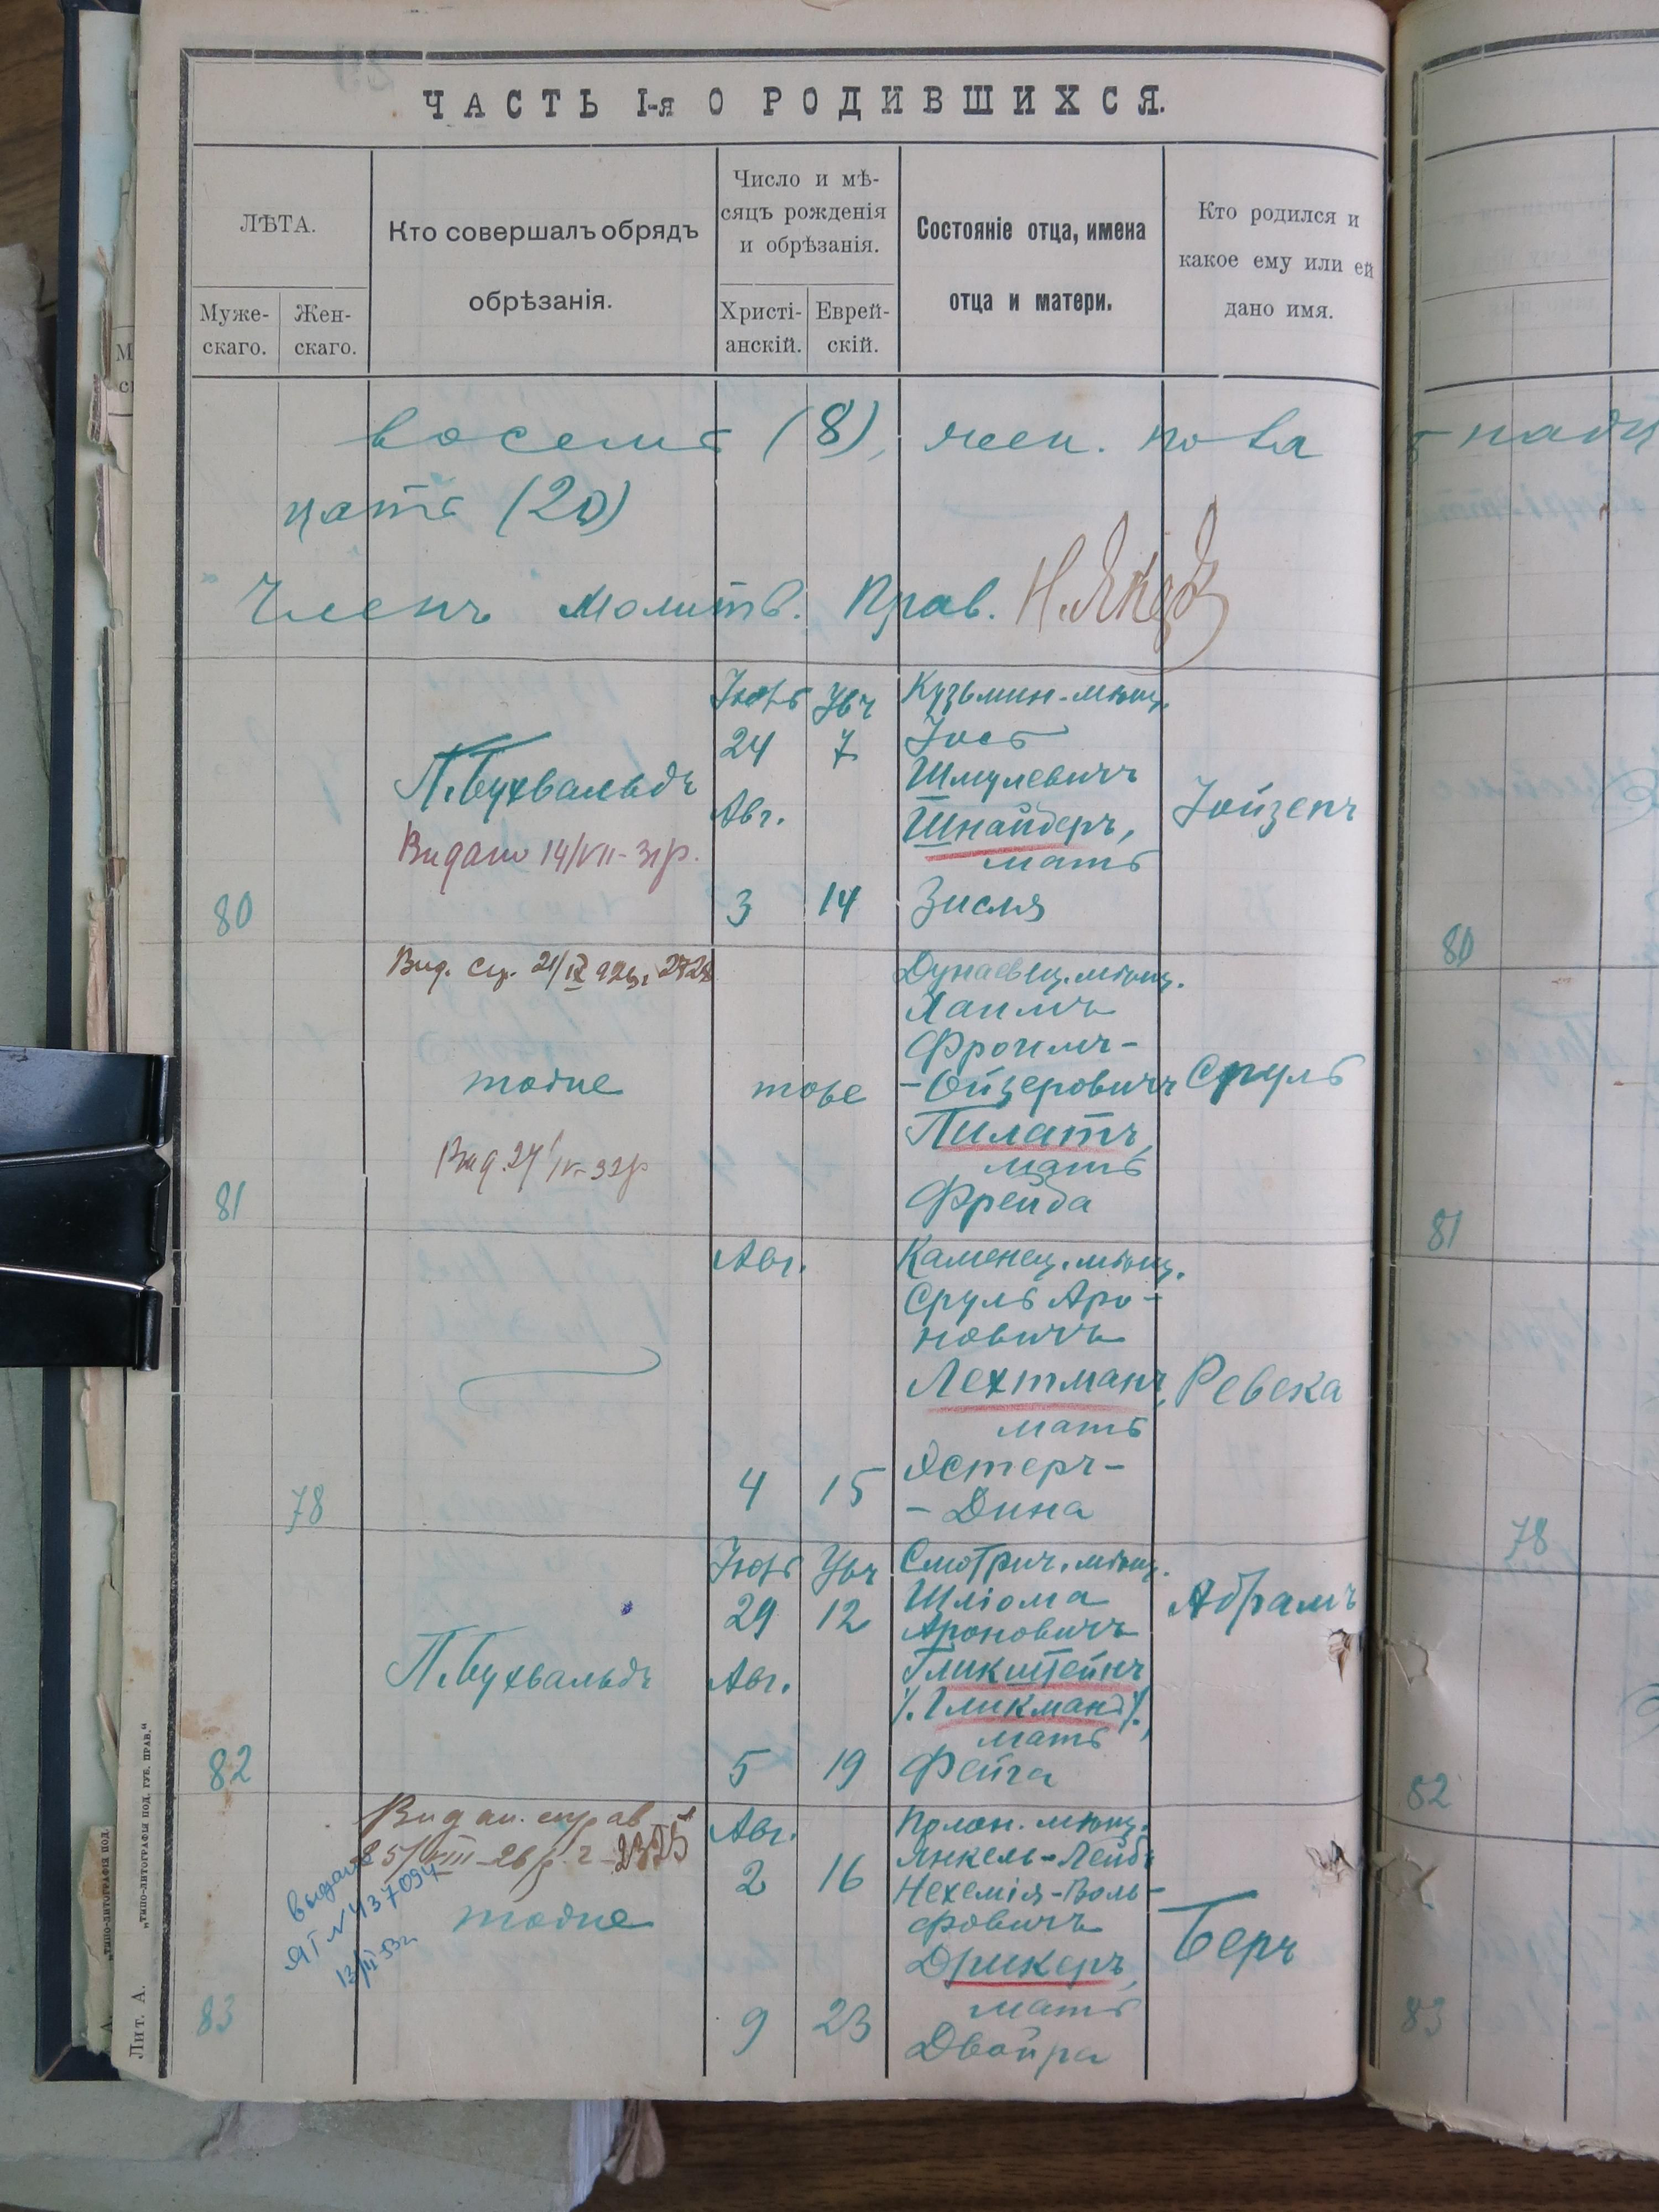 ЧАСТЬ I-я О РОДИВШИХСЯ.
ЛѢТА.
Муже-
скаго.
Жен-
скаго.
Кто совершалъ обрядъ
обрѣзанія.
Число и мѣ-
сяцъ рожденія
и обрѣзанія.
Христі-
анскій.
Еврей-
скій.
Состояніе отца, имена
отца и матери.
Кто родился и
какое ему или ей
дано имя.
восемь (8), жен.
цать (20)
Членъ Молитв. Прав.
80
П. Бухвальдъ
Видано 14/VII-31р.
24 7
Авг.
3 14
Кузьмин. мѣщ.
Іось
Шмулевичъ
Шнайдеръ,
мать
Зисля
Іойзепъ
81
Вид. 21/IX 926
тоже
Вид. 27/IV-32р
тоже
Дунаевец. мѣщ.
Хаимъ
Фроимъ-
-Ойзеровичъ
Пилатъ,
мать
Фрейда
Сруль
78
Авг.
4 15
Каменец. мѣщ.
Сруль Аро-
новичъ
Лехтманъ,
мать
Эстеръ-
-Дина
Ревека
82
П. Бухвальдъ
29 12
Авг.
5 19
Смотрич. мѣщ.
Шліома
Ароновичъ
Гликштейнъ
/. Гликманъ ./,
мать
Фейга
Абрамъ
83
Видан. справ
25/VIII-26 р. 2375
выдано
ЯГ № 437094
тоже
Авг.
2 16
9 23
мѣщ.
Янкель-Лейбъ
Нехемія-Воль-
фовичъ
Дрикеръ,
мать
Двойра
Беръ
80
81
78
82
83
Лит. А.
„ТИПО-ЛИТОГРАФІЯ ПОД. ГУБ. ПРАВ.“